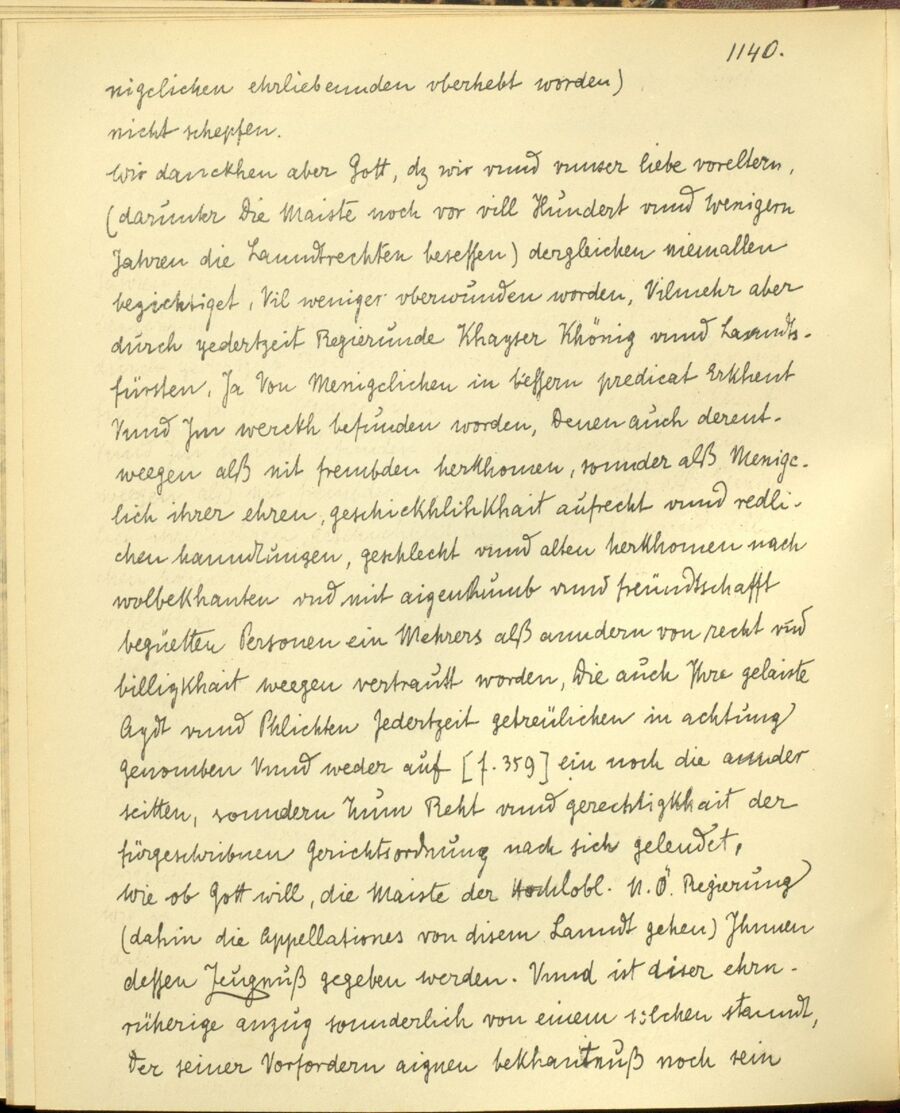 1140.
nigclichen ehrliebennden vberhebt worden)
nicht schepfen.
Wir danckhen aber Gott, dz wir vnnd vnnser liebe voreltern,
(darunter Die Maiste noch vor vill Hundert vnnd Wenigern
Jahren die Lanndtrechten besessen) dergleichen niemallen
bezichtiget, Vil weniger vberwunden worden, Vilmehr aber
durch yedertzeit Regierunde Khayser Khönig vnnd Lanndts-
fürsten, Ja Von Menigclichen in bessern predicat Erkhent
Vnnd Im werckh befunden worden, Denen auch derent-
weegen alß nit frembden herkhomen, sonnder alß Menigc-
lich ihrer ehren, geschickhlihkhait aufrecht vnnd redli-
chen hanndlungen, geschlecht vnnd alten herkhomen nach
wolbekhanten vnd mit aigenthumb vnnd freündtschafft
begüetten Personen ein Mehrers alß anndern von recht vnd
billigkhait weegen vertrautt worden, Die auch Ihre gelaiste
Aydt vnnd Phlichten Jedertzeit getreülichen in achtung
genomben Vnnd weder auf [f. 359] ein noch die annder
seitten, sonndern Zum Reht vnnd gerechtigkhait der
fürgeschribnen Gerichtsordnung nach sich gelendet,
Wie ob Gott will, die Maiste der Hochlobl. N. Ö. Regierung
(dahin die Appellationes von disem Lanndt gehen) Ihnnen
dessen Zeugnuß gegeben werden. Vnnd ist diser ehrn-
rüherige anzug sonnderlich von einem solchen stanndt,
Der seiner Vorfordern aignen bekhantnuß noch sein